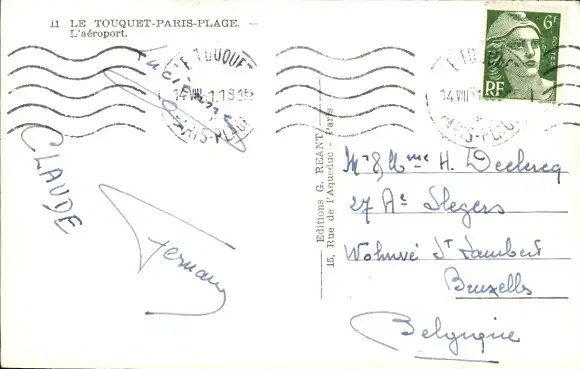 11 LE TOUQUET-PARIS-PLAGE. -
L'aéroport.
LE TOUQUET
14 VIII 51.1815
PARIS-PLAGE
LE TOUQUET
14 VIII 51
PARIS-PLAGE
6F
RF
Lucienne
CLAUDE
Fernand
Editions G. REANT
15, Rue de l'Aqueduc - Paris
Mr & Mme H. Declercq
27 Ae Slegers
Woluwé St Lambert
Bruxelles
Belgique